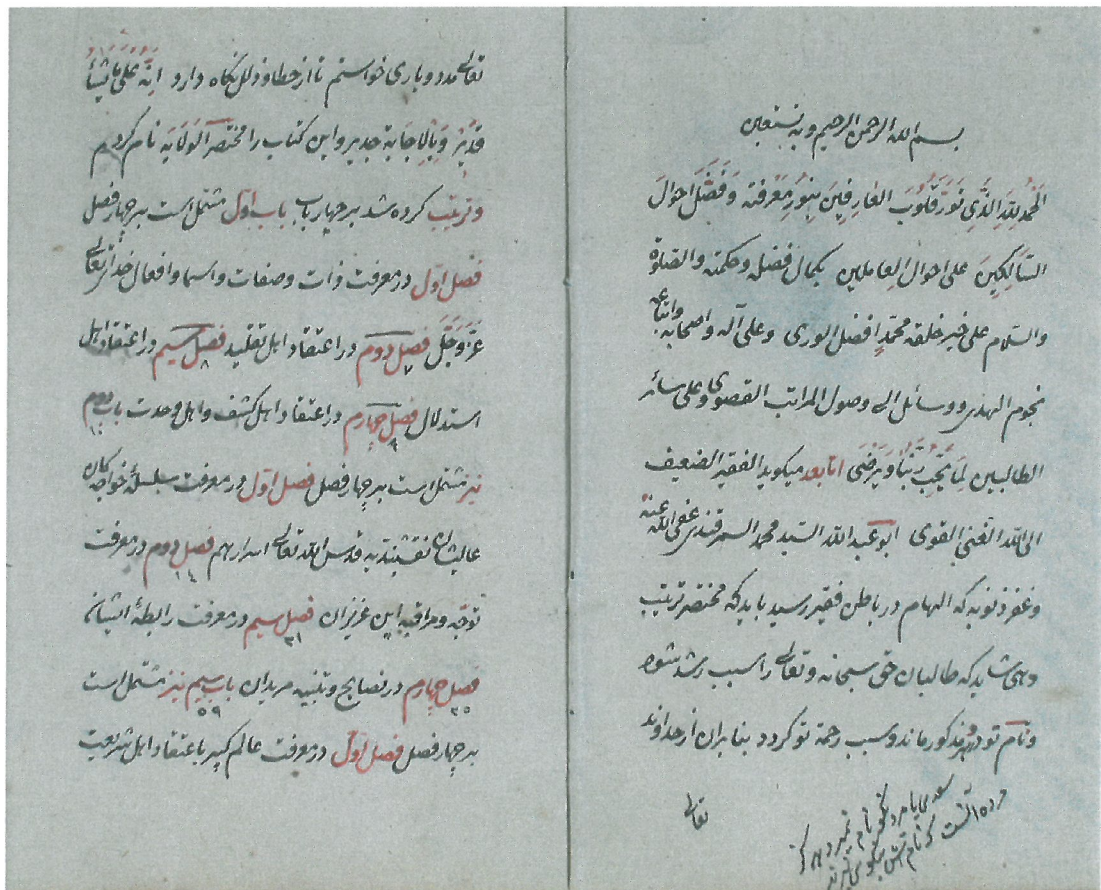 بسم الله الرحمن الرحیم وبه نستعین
اَلْحَمْدُ لِلّٰهِ الَّذِی نَوَّرَ قُلُوبَ العَارِفِینَ بِنُورِ مَعْرِفَتِهِ وَفَضَّلَ احوالَ
السَّالِکِینَ علی احوال العاملین بکمال فضله وحکمته والصلوة
والسّلام علی خیر خلقه محمّدٍ افضل الوری وعلی آله واصحابه واتباعه
نجوم الهدی ووسائل الی وصول المراتب القصوی وعلی سائر
الطالبین لِمَا یُحِبُّ رَبُّنَا وَیَرْضَی امّا بعد میکوید الفقیر الضعیف
الی الله الغنی القوی ابو عبد الله السیّد محمد السمرقندی عفی الله عنه
وغفر ذنوبه که الهام در باطن فقیر رسید باید که مختصر ترتیب
دهی شاید که طالبان حق سبحانه وتعالی را سبب رشد شود
ونام تو در مذکور ماند وسبب رحمة تو کردد بنا بران از خداوند
تعالی
سعدیا مرد نکونام نمیرد هرکز
مرده آنست که نامش بنکویی نبرند
تعالی مدد ویاری خواستم تا از خطا وذلل نکاه دارد اِنَّهُ عَلَی مَا یَشَآءُ
قَدِیْرٌ وَبِالْاِجَابَةِ جدیر واین کتاب را مختصر الوَلَایَة نام کردم
وترتیب کرده شد بر چهار باب باب اوّل مشتمل است بر چهار فصل
فصل اوّل در معرفت ذات وصفات واسما وافعال خدای تعالی
عَزَّ وَجَلَّ فصل دوم در اعتقاد اهل تقلید فصل سیم در اعتقاد اهل
استدلال فصل چهارم در اعتقاد اهل کشف واهل وحدت باب دوم
نیز مشتمل است بر چهار فصل فصل اوّل در معرفت سلسلهٔ خواجکان
عالیشان نقشبندیه قدس الله تعالی اسرارهم فصل دوم در معرفت
توجّه ومراقبه این عزیزان فصل سیم در معرفت رابطهٔ ایشان
فصل چهارم در نصایح وتنبیه مریدان باب سیم نیز مشتمل است
بر چهار فصل فصل اوّل در معرفت عالم کبیر باعتقاد اهل شریعت